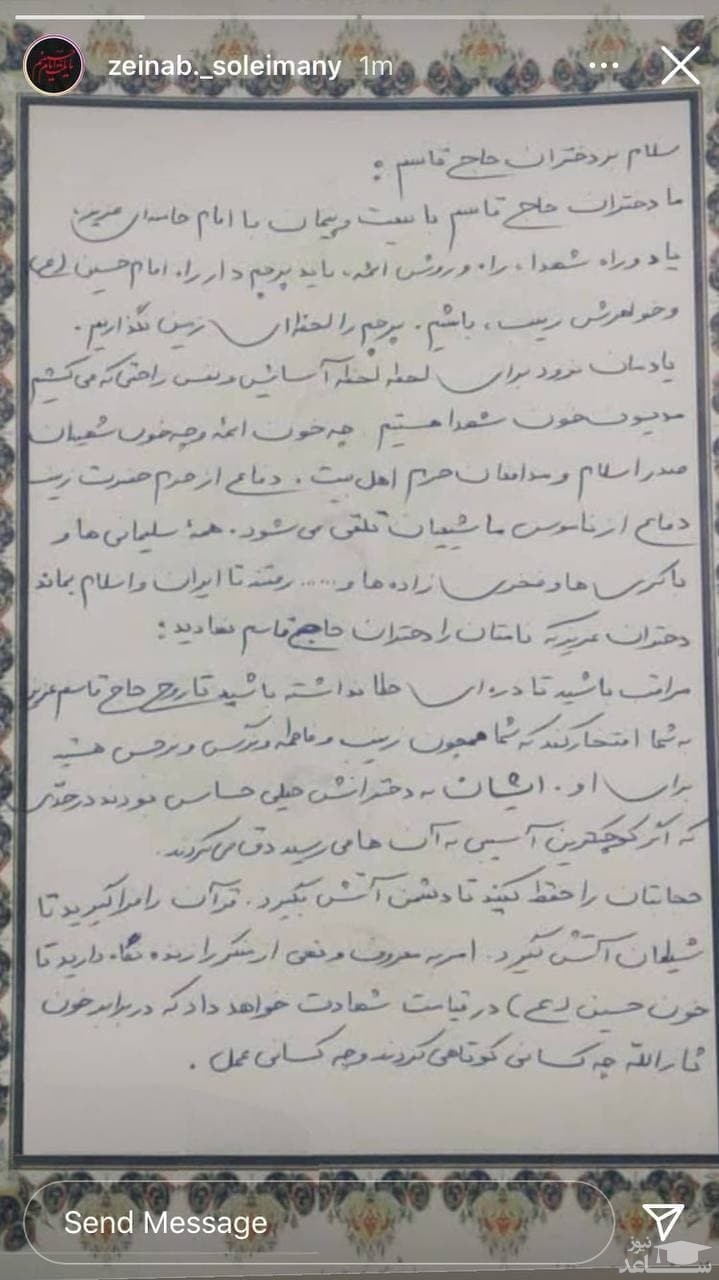 zeinab._soleimany 1m
سلام بر دختران حاج قاسم :
ما دختران حاج قاسم با بیعت و پیمان با امام خامنه‌ای عزیز،
یاد و راه شهدا، راه و روش ائمه، باید پرچم دار راه امام حسین (ع)
و خواهرش زینب، باشیم. پرچم را لحظه‌ای زمین نگذاریم.
یادمان نرود برای لحظه لحظه آسایش و نفس راحتی که می کشیم
مدیون خون شهدا هستیم چه خون ائمه و چه خون شیعیان
صدر اسلام و مدافعان حرم اهل بیت. دفاع از حرم حضرت زینب
دفاع از ناموس ما شیعیان تلقی می شود. همهٔ سلیمانی ها و
باکری ها و فخری زاده ها و..... رفتند تا ایران و اسلام بماند
دختران عزیزی که نامتان را دختران حاج قاسم نهادید :
مراقب باشید تا ذره ای خطا نداشته باشید تا روح حاج قاسم عزیز
به شما افتخار کند که شما همچون زینب و فاطمه و نرگس و نرجس هستید
برای او. ایشان به دخترانش خیلی حساس بودند در حدّی
که اگر کوچکترین آسیبی به آن ها می رسید دق می کردند.
حجابتان را حفظ کنید تا دشمن آتش بگیرد. قرآن را فرا گیرید تا
شیطان آتش گیرد. امر به معروف و نهی از منکر را زنده نگاه دارید تا
خون حسین (ع) در قیامت شهادت خواهد داد که در برابر خون
ثارالله چه کسانی کوتاهی کردند و چه کسانی عمل.
Send Message
نیوز
ساعد